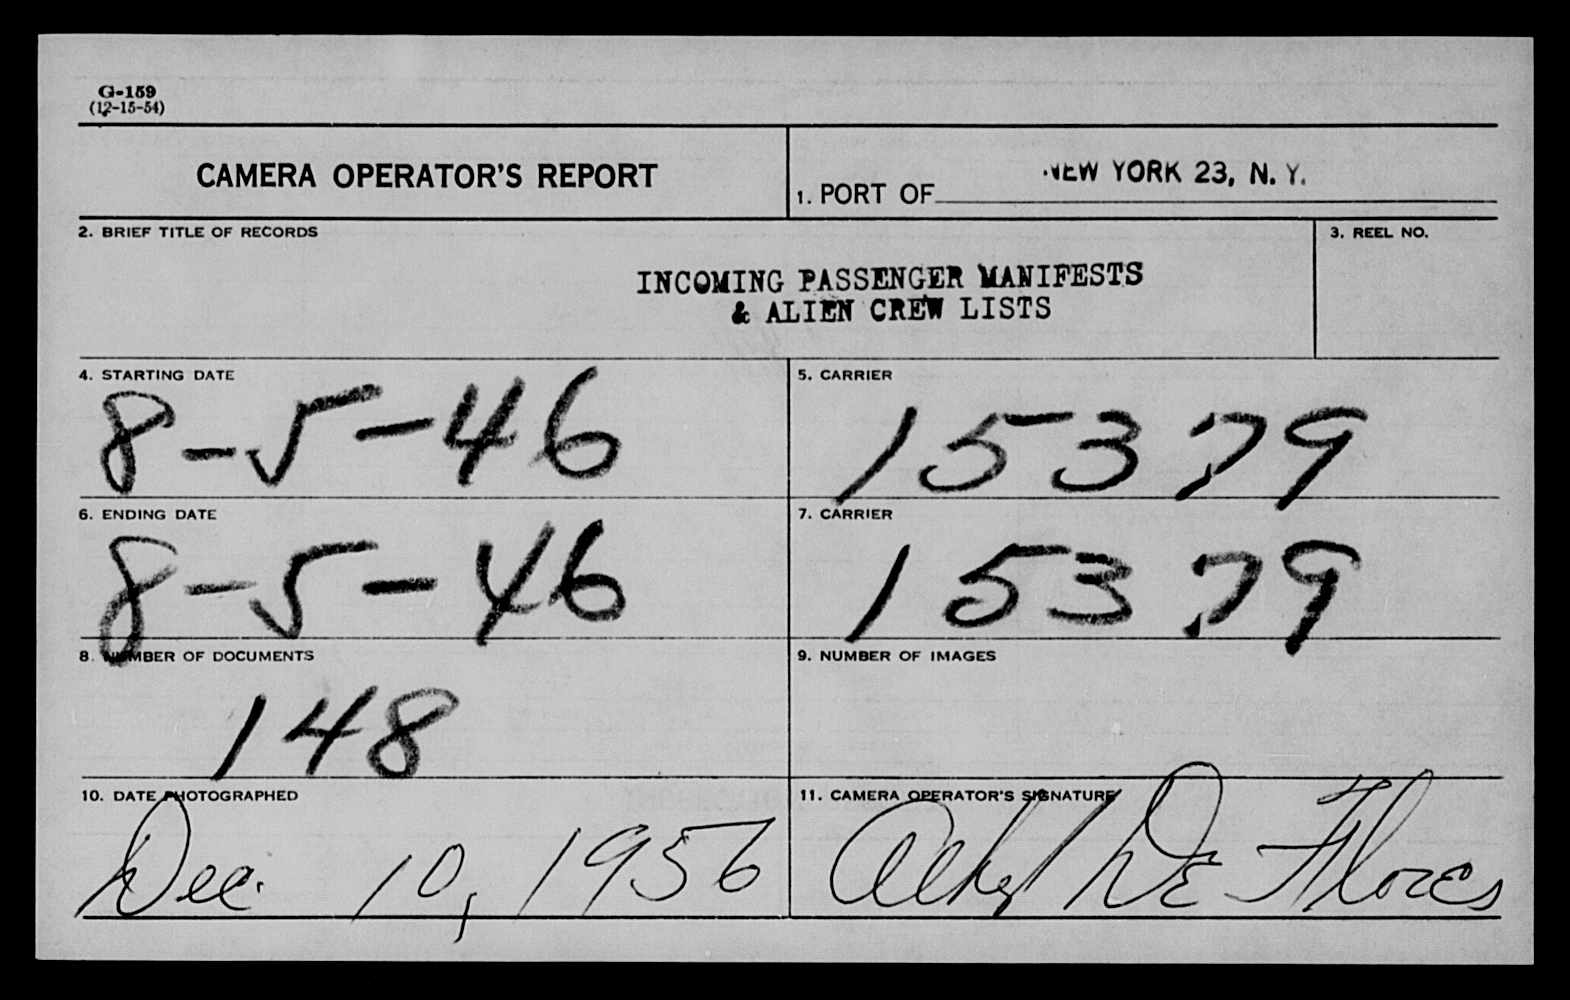 G-159
(12-15-54)
CAMERA OPERATOR'S REPORT
1. PORT OF NEW YORK 23, N. Y.
2. BRIEF TITLE OF RECORDS
3. REEL NO.
INCOMING PASSENGER MANIFESTS
& ALIEN CREW LISTS
4. STARTING DATE
8-5-46
5. CARRIER
15379
6. ENDING DATE
8-5-46
7. CARRIER
15379
8. NUMBER OF DOCUMENTS
148
9. NUMBER OF IMAGES
10. DATE PHOTOGRAPHED
Dec. 10, 1956
11. CAMERA OPERATOR'S SIGNATURE
De Flores